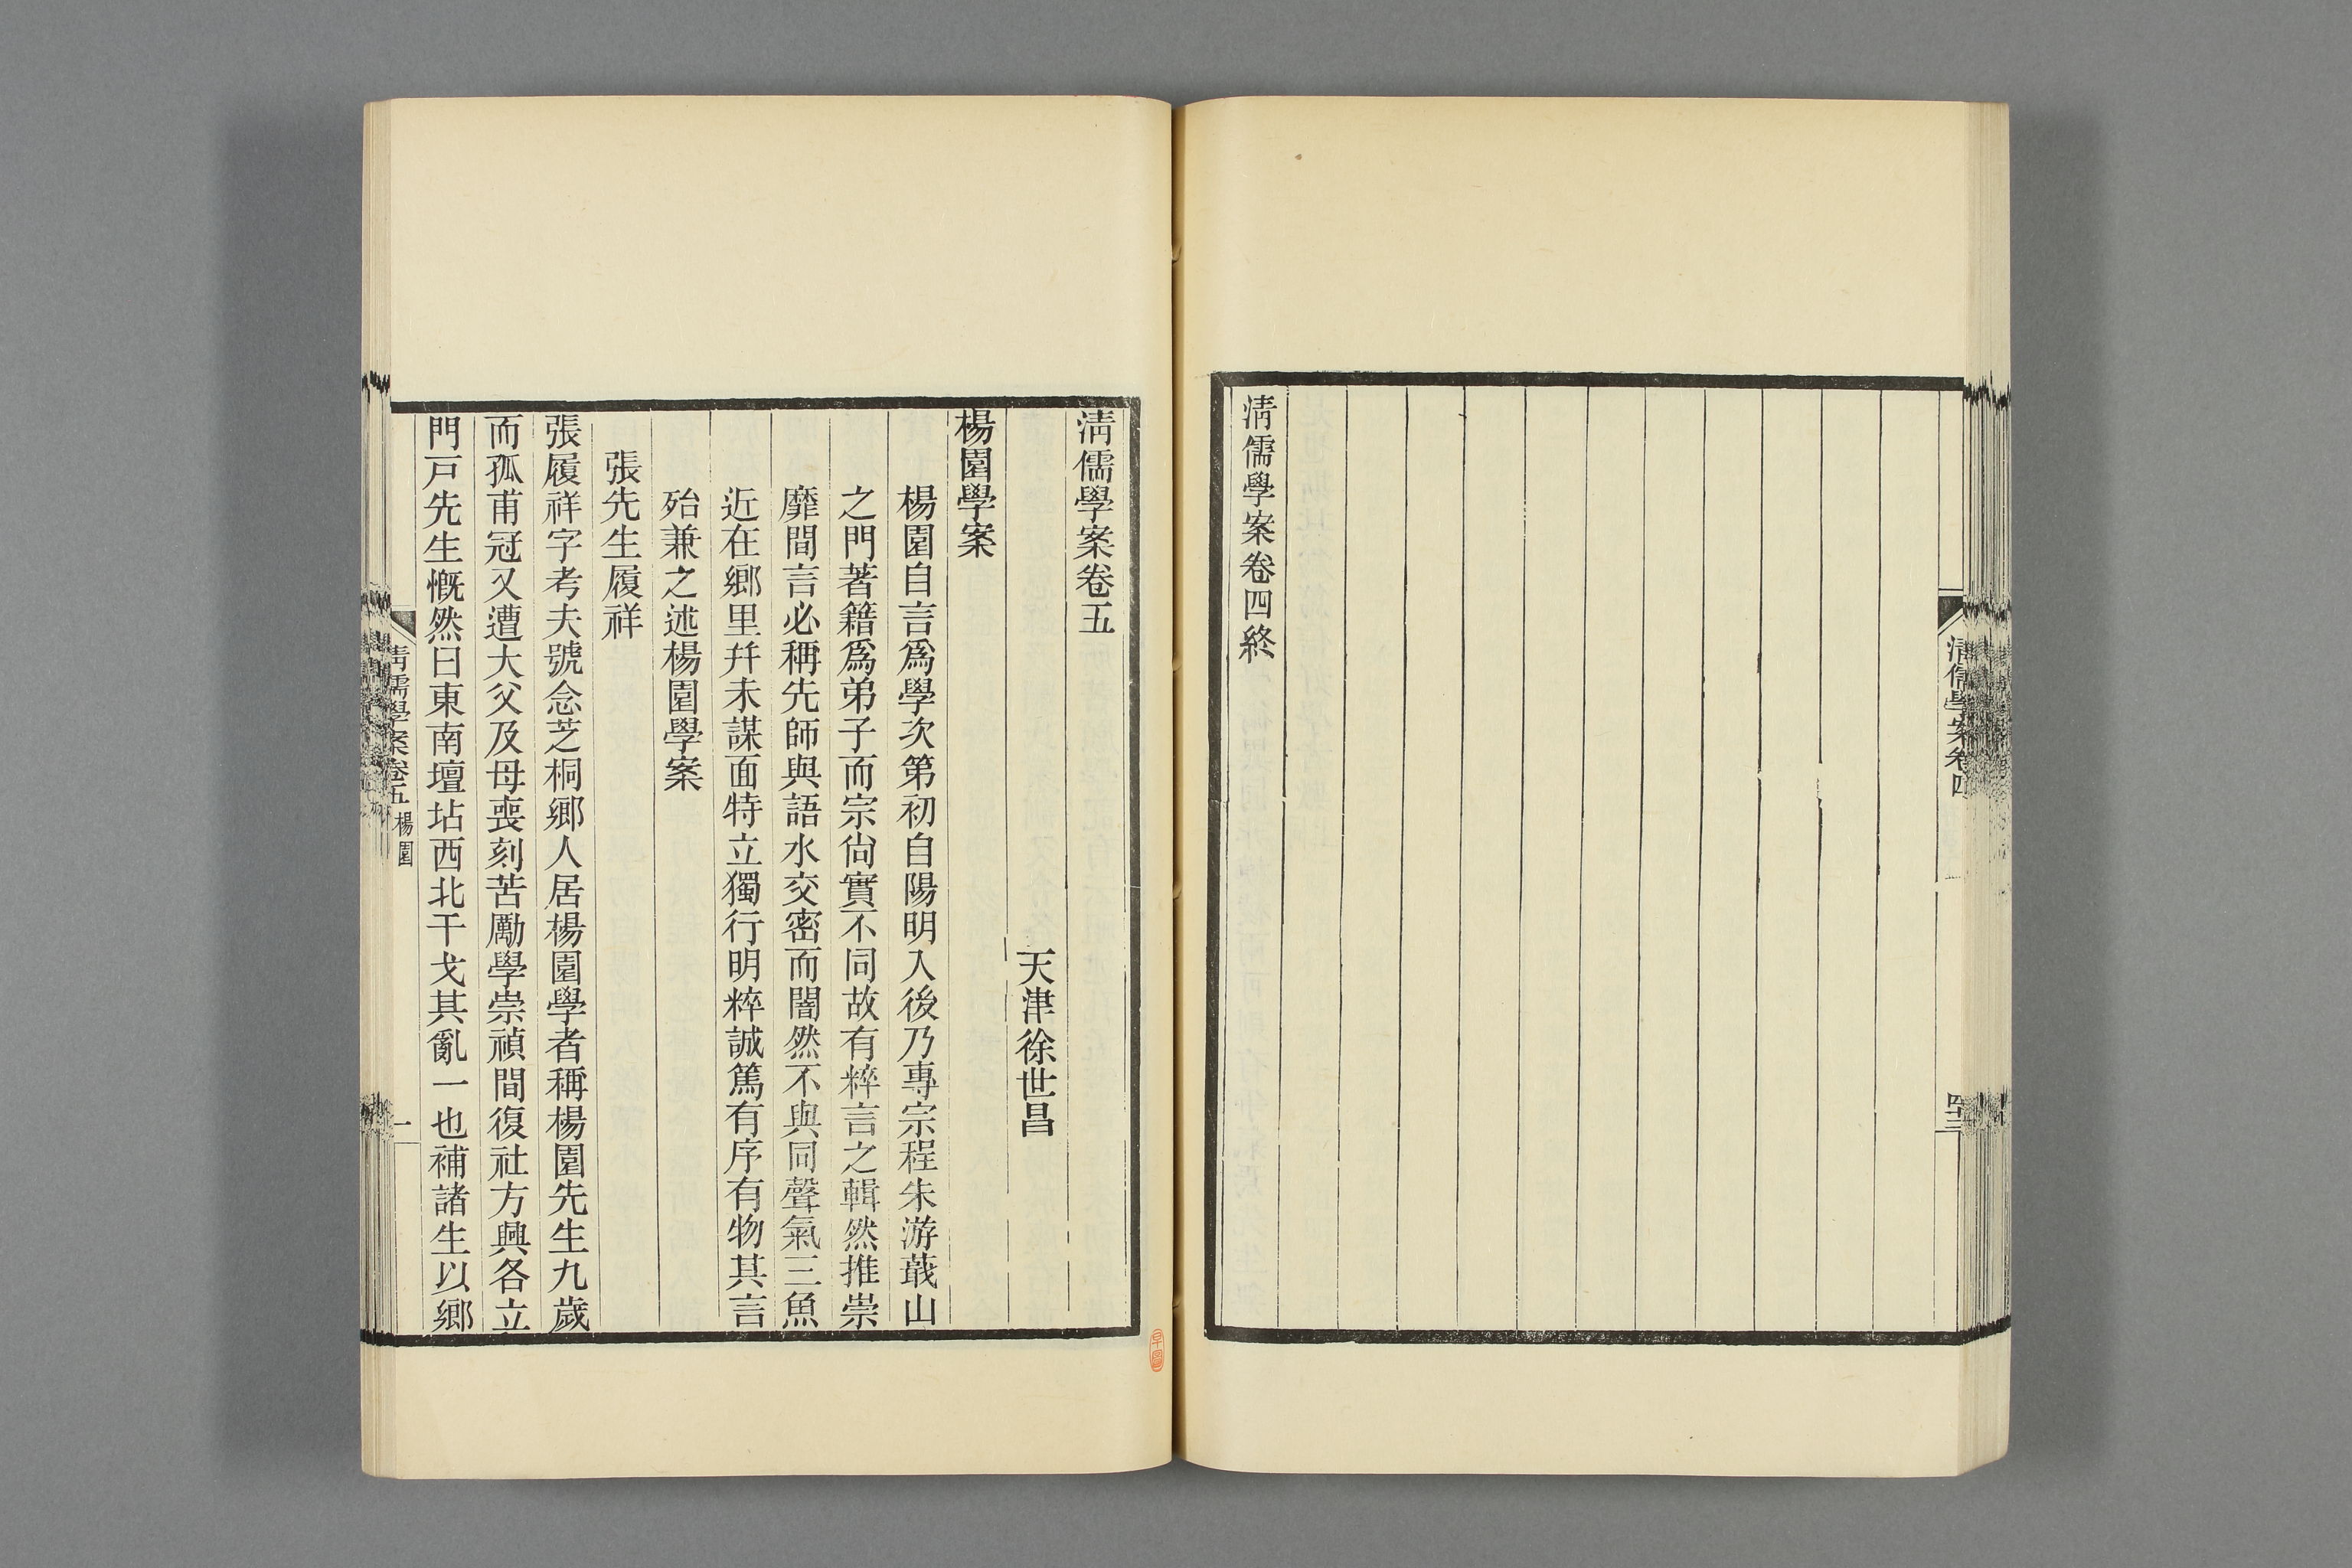 清儒學案卷四
四十三
清儒學案卷四終
清儒學案卷五
天津徐世昌
楊園學案
楊園自言爲學次第初自陽明入後乃專宗程朱游蕺山
之門著籍爲弟子而宗尙實不同故有粹言之輯然推崇
靡間言必稱先師與語水交密而闇然不與同聲氣三魚
近在鄉里幷未謀面特立獨行明粹誠篤有序有物其言
殆兼之述楊園學案
張先生履祥
張履祥字考夫號念芝桐鄉人居楊園學者稱楊園先生九歲
而孤甫冠又遭大父及母喪刻苦勵學崇禎間復社方興各立
門戸先生慨然曰東南壇坫西北干戈其亂一也補諸生以鄉
清儒學案卷五 楊園
一